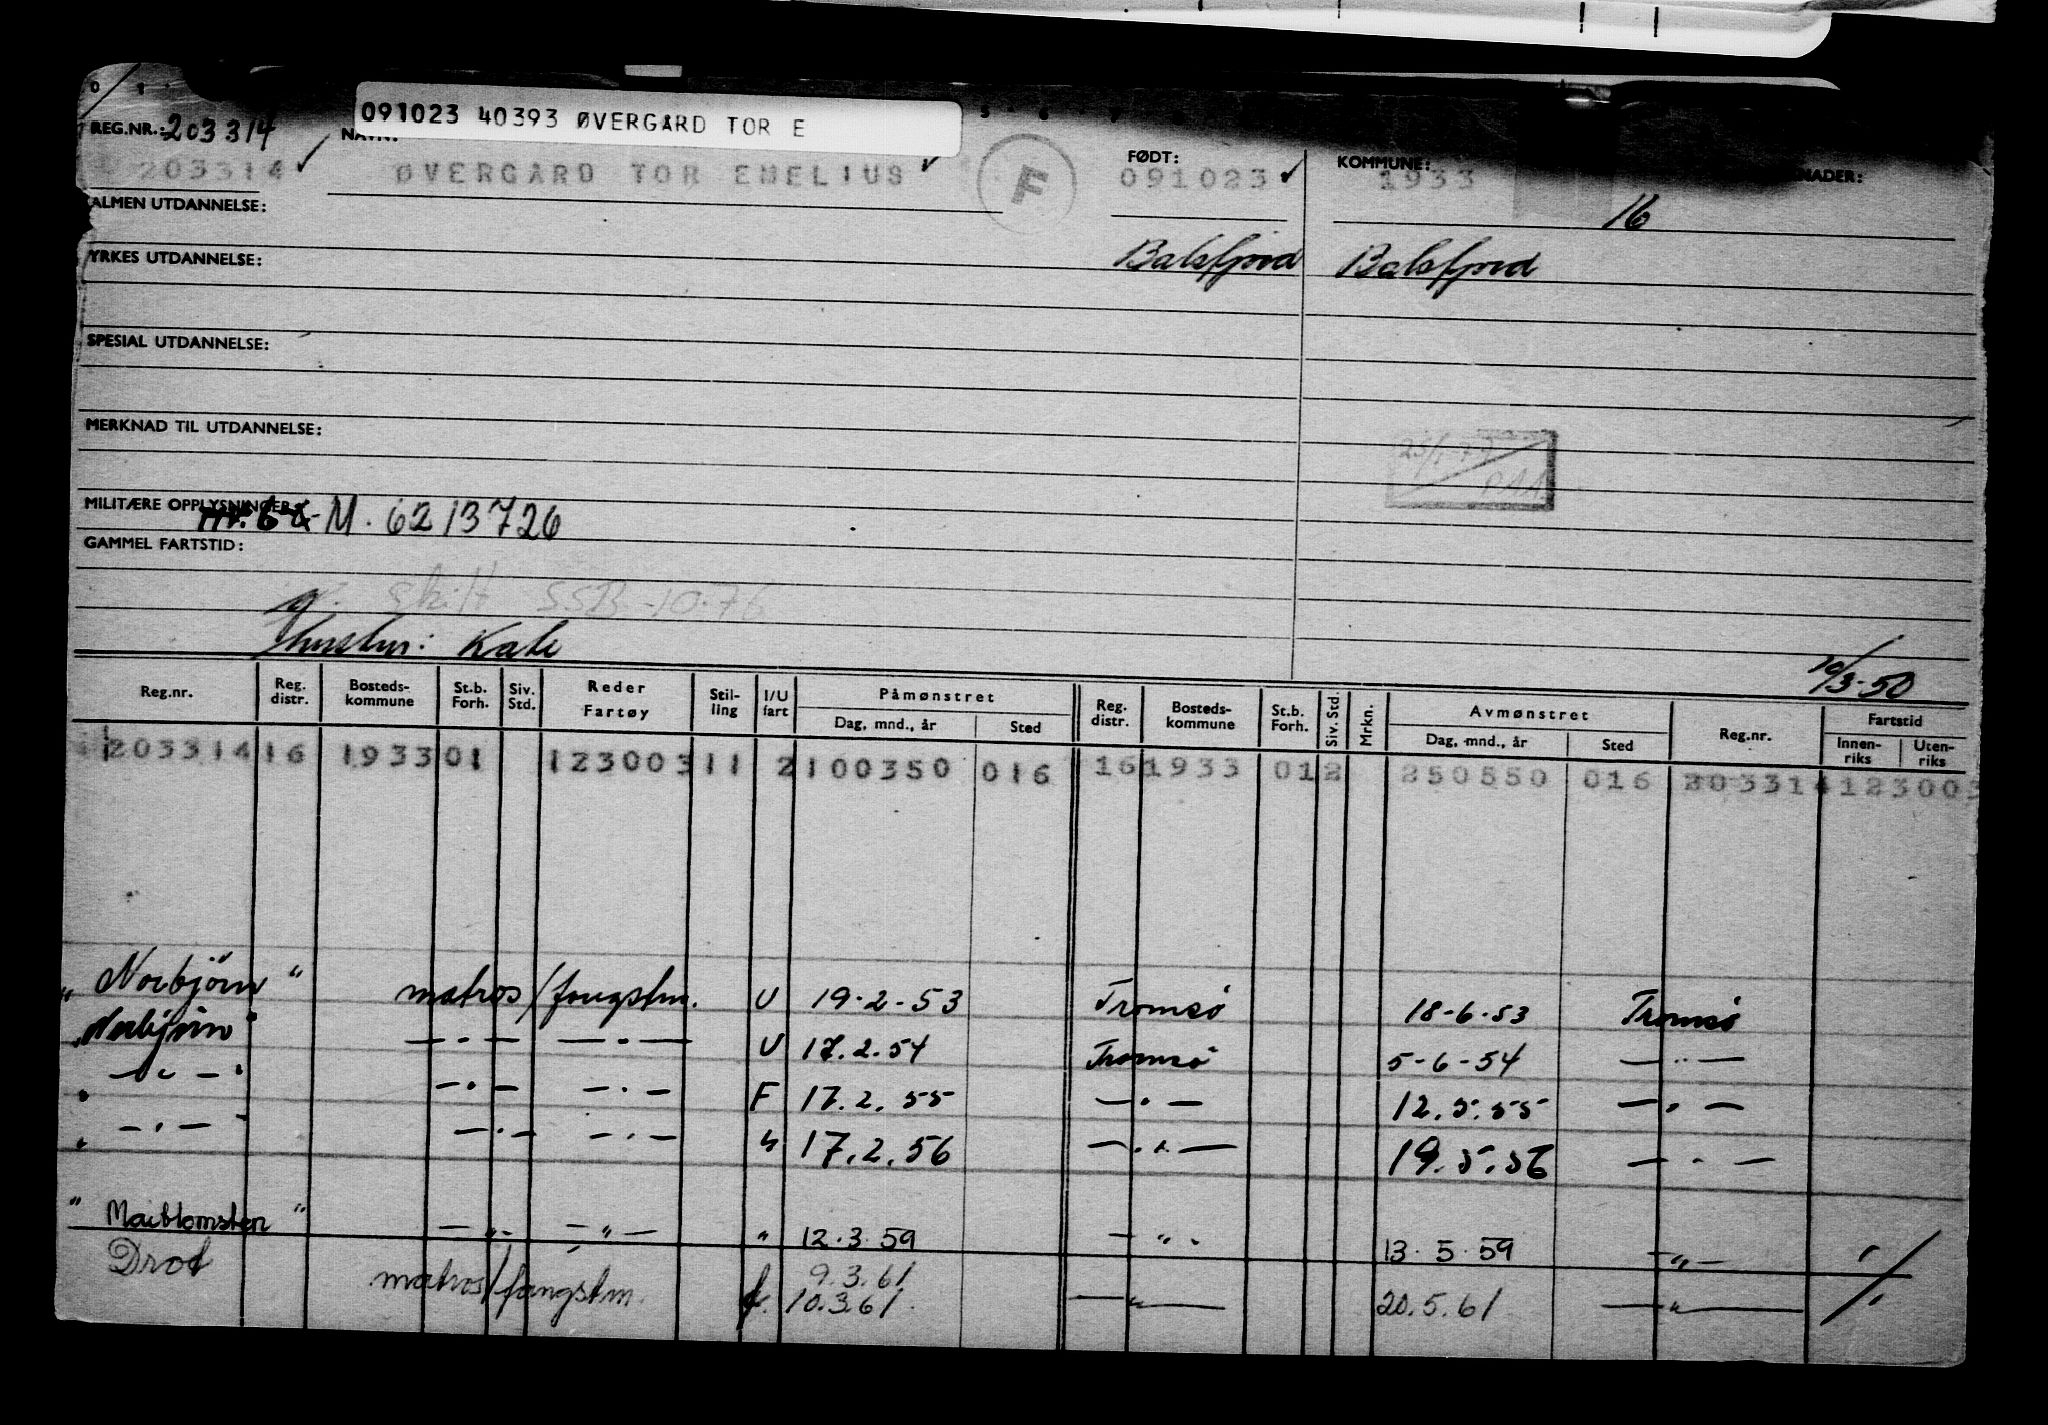 091023 40393 ØVERGÅRD TOR E
REG.NR.: 203314
NAVN:
FØDT:
KOMMUNE:
203314 ✓ ØVERGÅRD TOR EMELIUS ✓ F 091023 ✓ 1933
ALMEN UTDANNELSE: 16
YRKES UTDANNELSE: Balsfjord Balsfjord
SPESIAL UTDANNELSE:
MERKNAD TIL UTDANNELSE:
MILITÆRE OPPLYSNINGER: M. 6213726
GAMMEL FARTSTID:
g. Skilt SSB-10.76
Hustru: Kate
10/3-50
Reg.nr. Reg. distr. Bosteds-kommune St.b. Forh. Siv. Std. Reder Fartøy Stil-ling I/U fart Påmønstret Dag, mnd., år Sted Reg. distr. Bosteds-kommune St.b. Forh. Siv. Std. Mrkn. Avmønstret Dag, mnd., år Sted Reg.nr. Fartstid Innen-riks Uten-riks
203314 16 1933 01 123003 11 2 100350 016 16 1933 01 2 250550 016 203314 123003
" Norbjörn " matros/fangstm. U 19-2-53 Tromsö 18-6-53 Tromsö
" Norbjörn " —·— —·— U 17.2.54 Tromsö 5-6-54 —"—
" —"— " —·— —·— F 17.2.55 —·— 12.5.55 —·—
" —·— " —·— —·— 17.2.56 —"— 19.5.56 —·—
" Maiblomsten " —"— —"— " 12.3.59 —"— 13.5.59 —"— "
Drot matros/fangstm. f. 9.3.61
10.3.61. —"— 20.5.61 —"— "